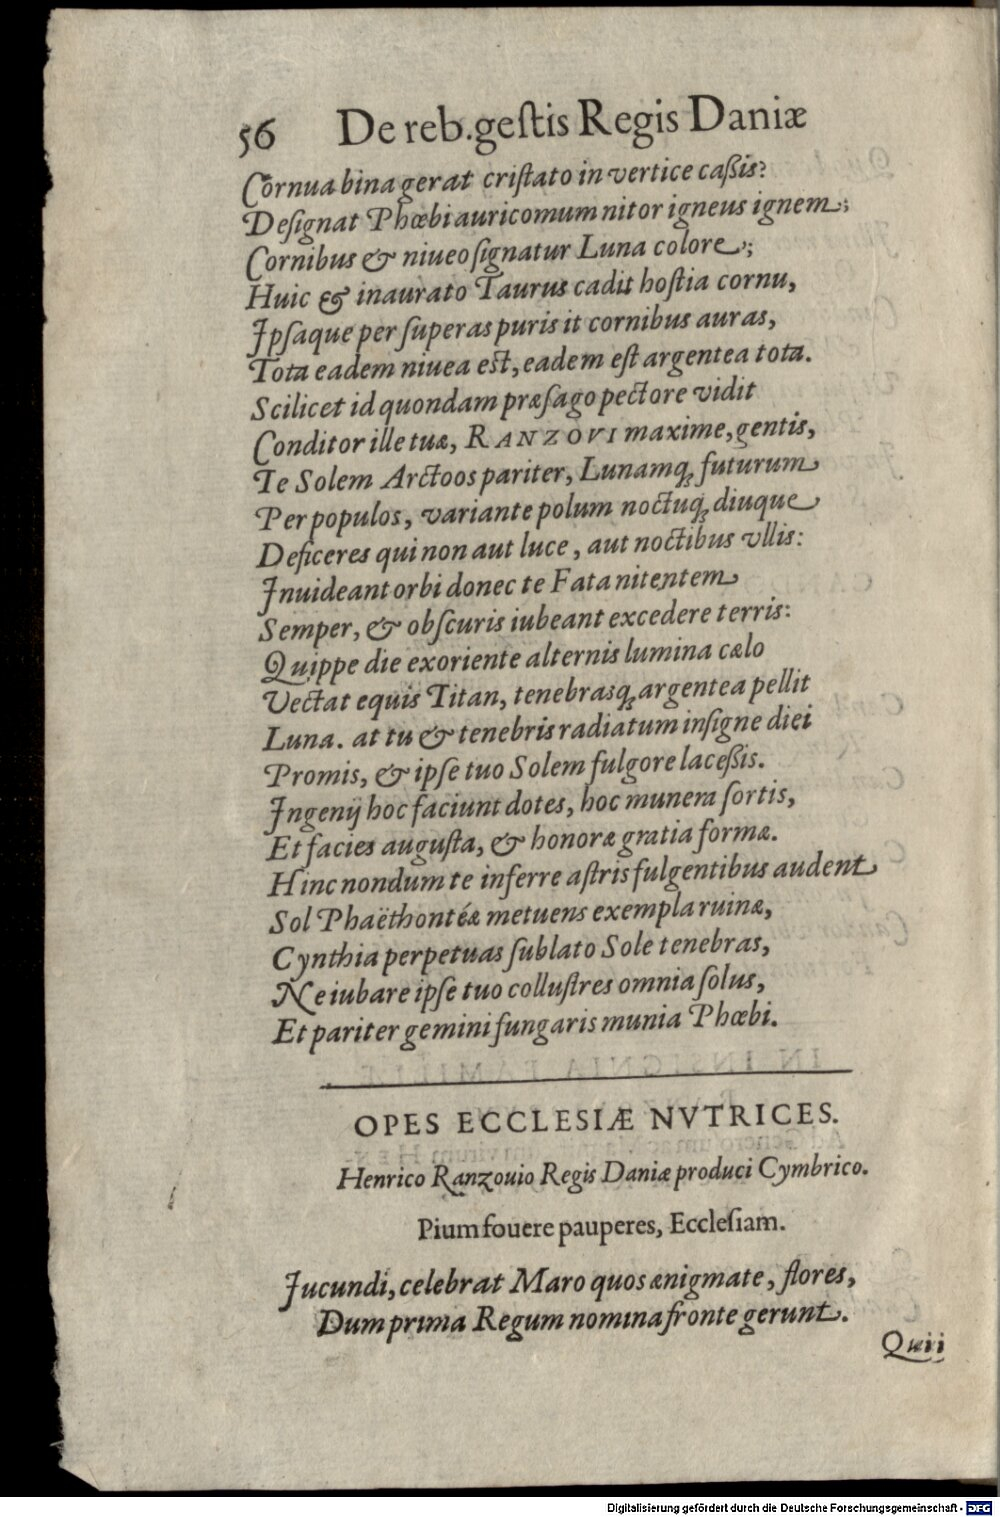 56 De reb. geſtis Regis Daniæ
Cornua bina gerat criſtato in vertice caßis?
Deſignat Phœbi auricomum nitor igneus ignem;
Cornibus & niueo ſignatur Luna colore;
Huic & inaurato Taurus cadit hoſtia cornu,
Ipſaque per ſuperas puris it cornibus auras,
Tota eadem niuea est, eadem eſt argentea tota.
Scilicet id quondam præſago pectore vidit
Conditor ille tuæ, RANZOVI maxime, gentis,
Te Solem Arctoos pariter, Lunamq́; futurum
Per populos, variante polum noctuq́; diuque
Deficeres qui non aut luce, aut noctibus vllis:
Inuideant orbi donec te Fata nitentem
Semper, & obſcuris iubeant excedere terris:
Quippe die exoriente alternis lumina cælo
Vectat equis Titan, tenebrasq́; argentea pellit
Luna. at tu & tenebris radiatum inſigne diei
Promis, & ipſe tuo Solem fulgore laceßis.
Ingenij hoc faciunt dotes, hoc munera ſortis,
Et facies auguſta, & honoræ gratia formæ.
Hinc nondum te inferre aſtris fulgentibus audent
Sol Phaëthontéæ metuens exempla ruinæ,
Cynthia perpetuas ſublato Sole tenebras,
Ne iubare ipſe tuo colluſtres omnia ſolus,
Et pariter gemini fungaris munia Phœbi.
OPES ECCLESIÆ NVTRICES.
Henrico Ranzouio Regis Daniæ produci Cymbrico.
Pium fouere pauperes, Eccleſiam.
Iucundi, celebrat Maro quos ænigmate, flores,
Dum prima Regum nomina fronte gerunt.
Quii
Digitalisierung gefördert durch die Deutsche Forschungsgemeinschaft - DFG